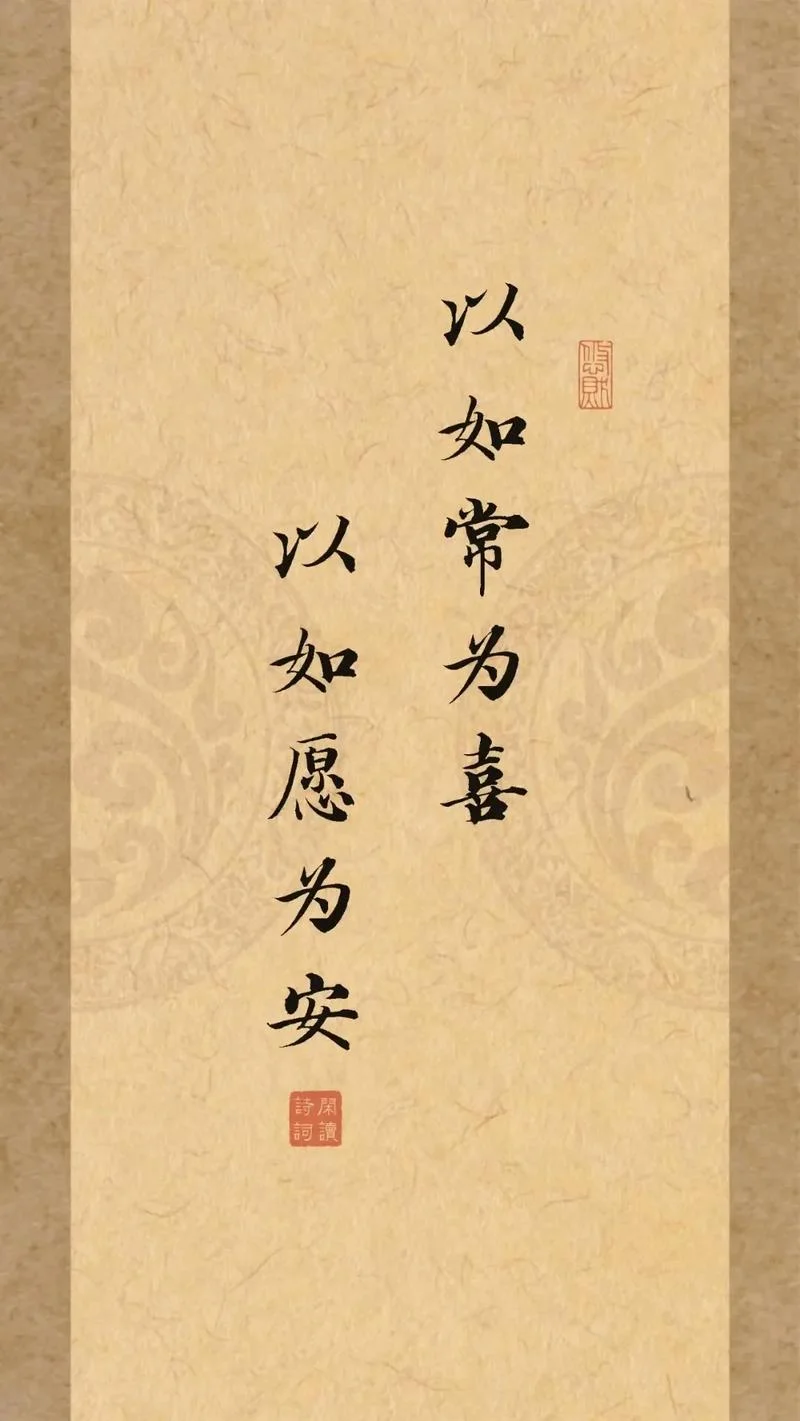 以如常为喜
以如愿为安
閑讀
詩詞